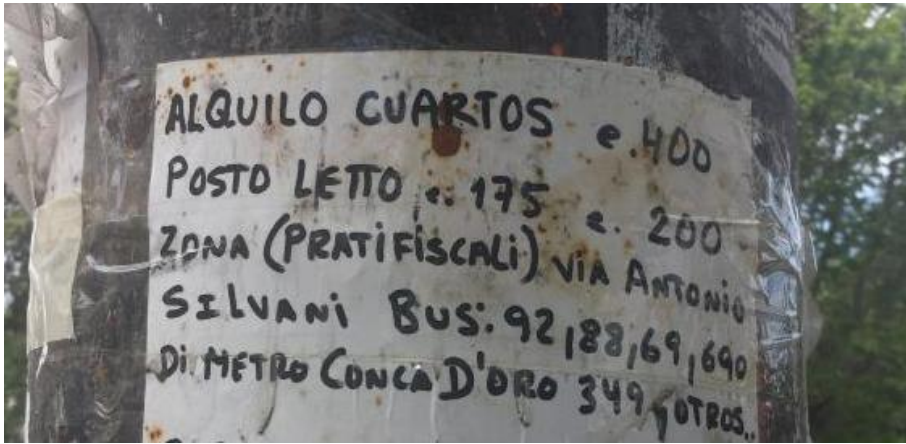 ALQUILO CUARTOS e.400
POSTO LETTO e. 175 e. 200
ZONA (PRATIFISCALi) ViA ANTONIO
SILVANi BUS: 92,88,69,690
Di METRO CONCA D'ORO 349, OTROS..